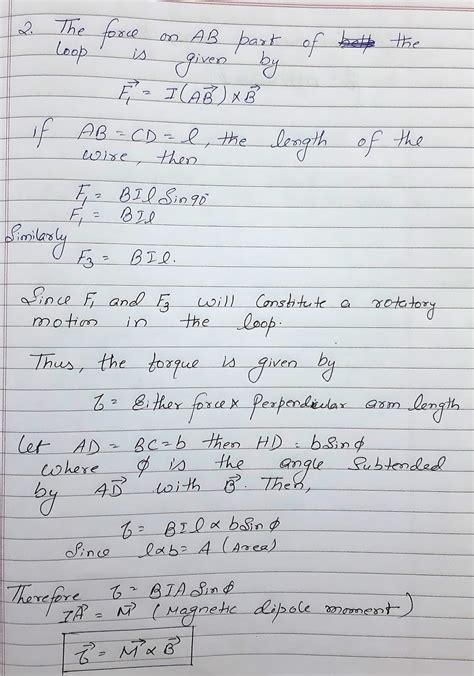 2. The force on AB part of the
loop is given by
F₁⃗ = I(AB⃗) × B⃗
if AB = CD = l, the length of the
wire, then
F₁ = BIl Sin90
F₁ = BIl
Similarly
F₃ = BIl.
Since F₁ and F₃ will Constitute a rotatory
motion in the loop.
Thus, the torque is given by
τ = Either force × Perpendicular arm length
Let AD = BC = b then HD = b Sin ϕ
where ϕ is the angle Subtended
by AD⃗ with B⃗. Then,
τ = BIl × b Sin ϕ
Since l×b = A (Area)
Therefore τ = BIA Sin ϕ
IA⃗ = M⃗ (Magnetic dipole moment)
τ⃗ = M⃗ × B⃗